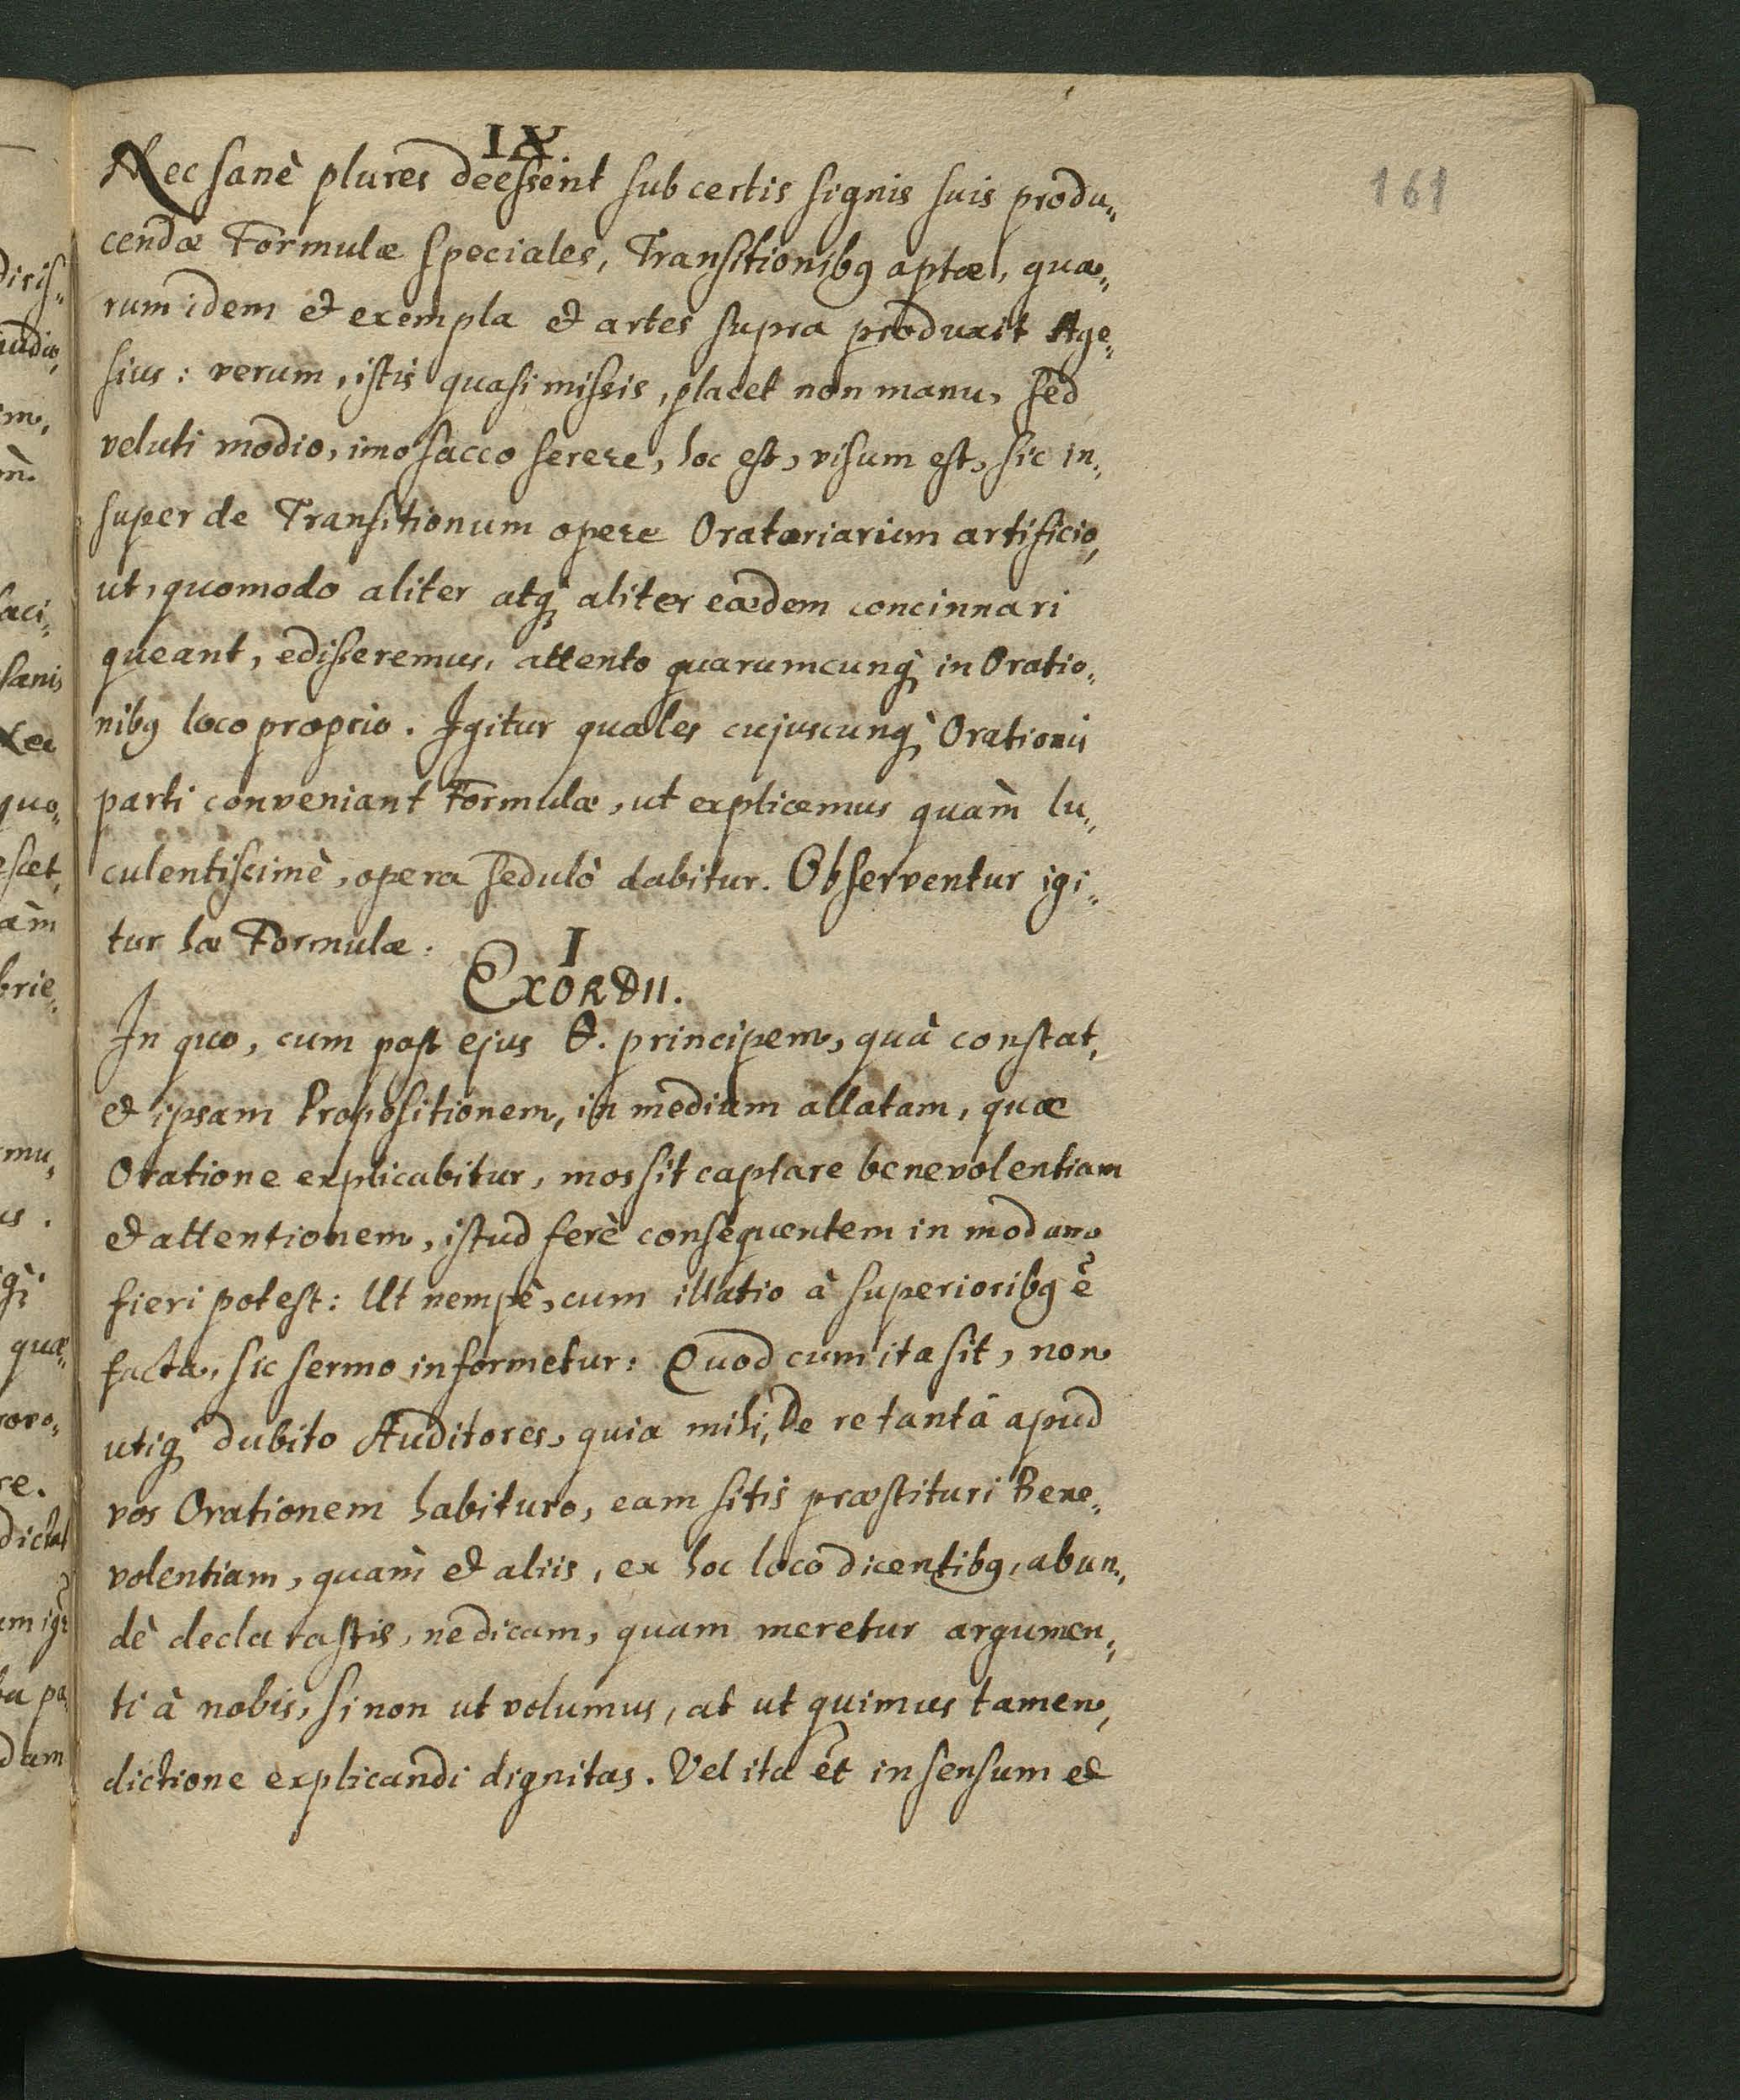 IX.
161
Nec sanè plures deessent sub certis signis suis produ„
cendæ Formulæ speciales, Transitionibꝫ aptæ, qua„
rum idem et exempla et artes supra produxit Age„
sius: verum, istis quasi missis, placet non manu, sed
veluti modio, imo sacco serere, hoc est, visum est, sic in„
super de Transitionum opere Oratoriarum artificio,
ut, quomodo aliter atqꝫ aliter eædem concinnari
queant, edisseremus, attento quarumcunqꝫ in Oratio„
nibꝫ loco proprio. Igitur quales cujuscunqꝫ Orationis
parti conveniant Formulæ, ut explicemus quàm lu„
culentissimè, opera sedulò dabitur. Observentur igi„
tur hæ Formulæ.
I
EXORDII.
In quo, cum post ejus Θ. principem, quâ constat,
et ipsam Propositionem, in medium allatam, quæ
Oratione explicabitur, mos sit captare benevolentiam
et attentionem, istud ferè consequentem in modum
fieri potest: Ut nempè, cum illatio à superioribꝫ ẽ
facta, sic sermo informetur: Quod cum ita sit, non
utiqꝫ dubito Auditores, quia mihi, De re tantâ apud
vos Orationem habituro, eam sitis præstituri Bene„
volentiam, quàm et aliis, ex hoc loco dicentibꝫ, abun„
dè declarastis, ne dicam, quam meretur argumen„
ti à nobis, si non ut volumus, at ut quimus tamen,
dictione explicandi dignitas. Vel ita et in sensum et